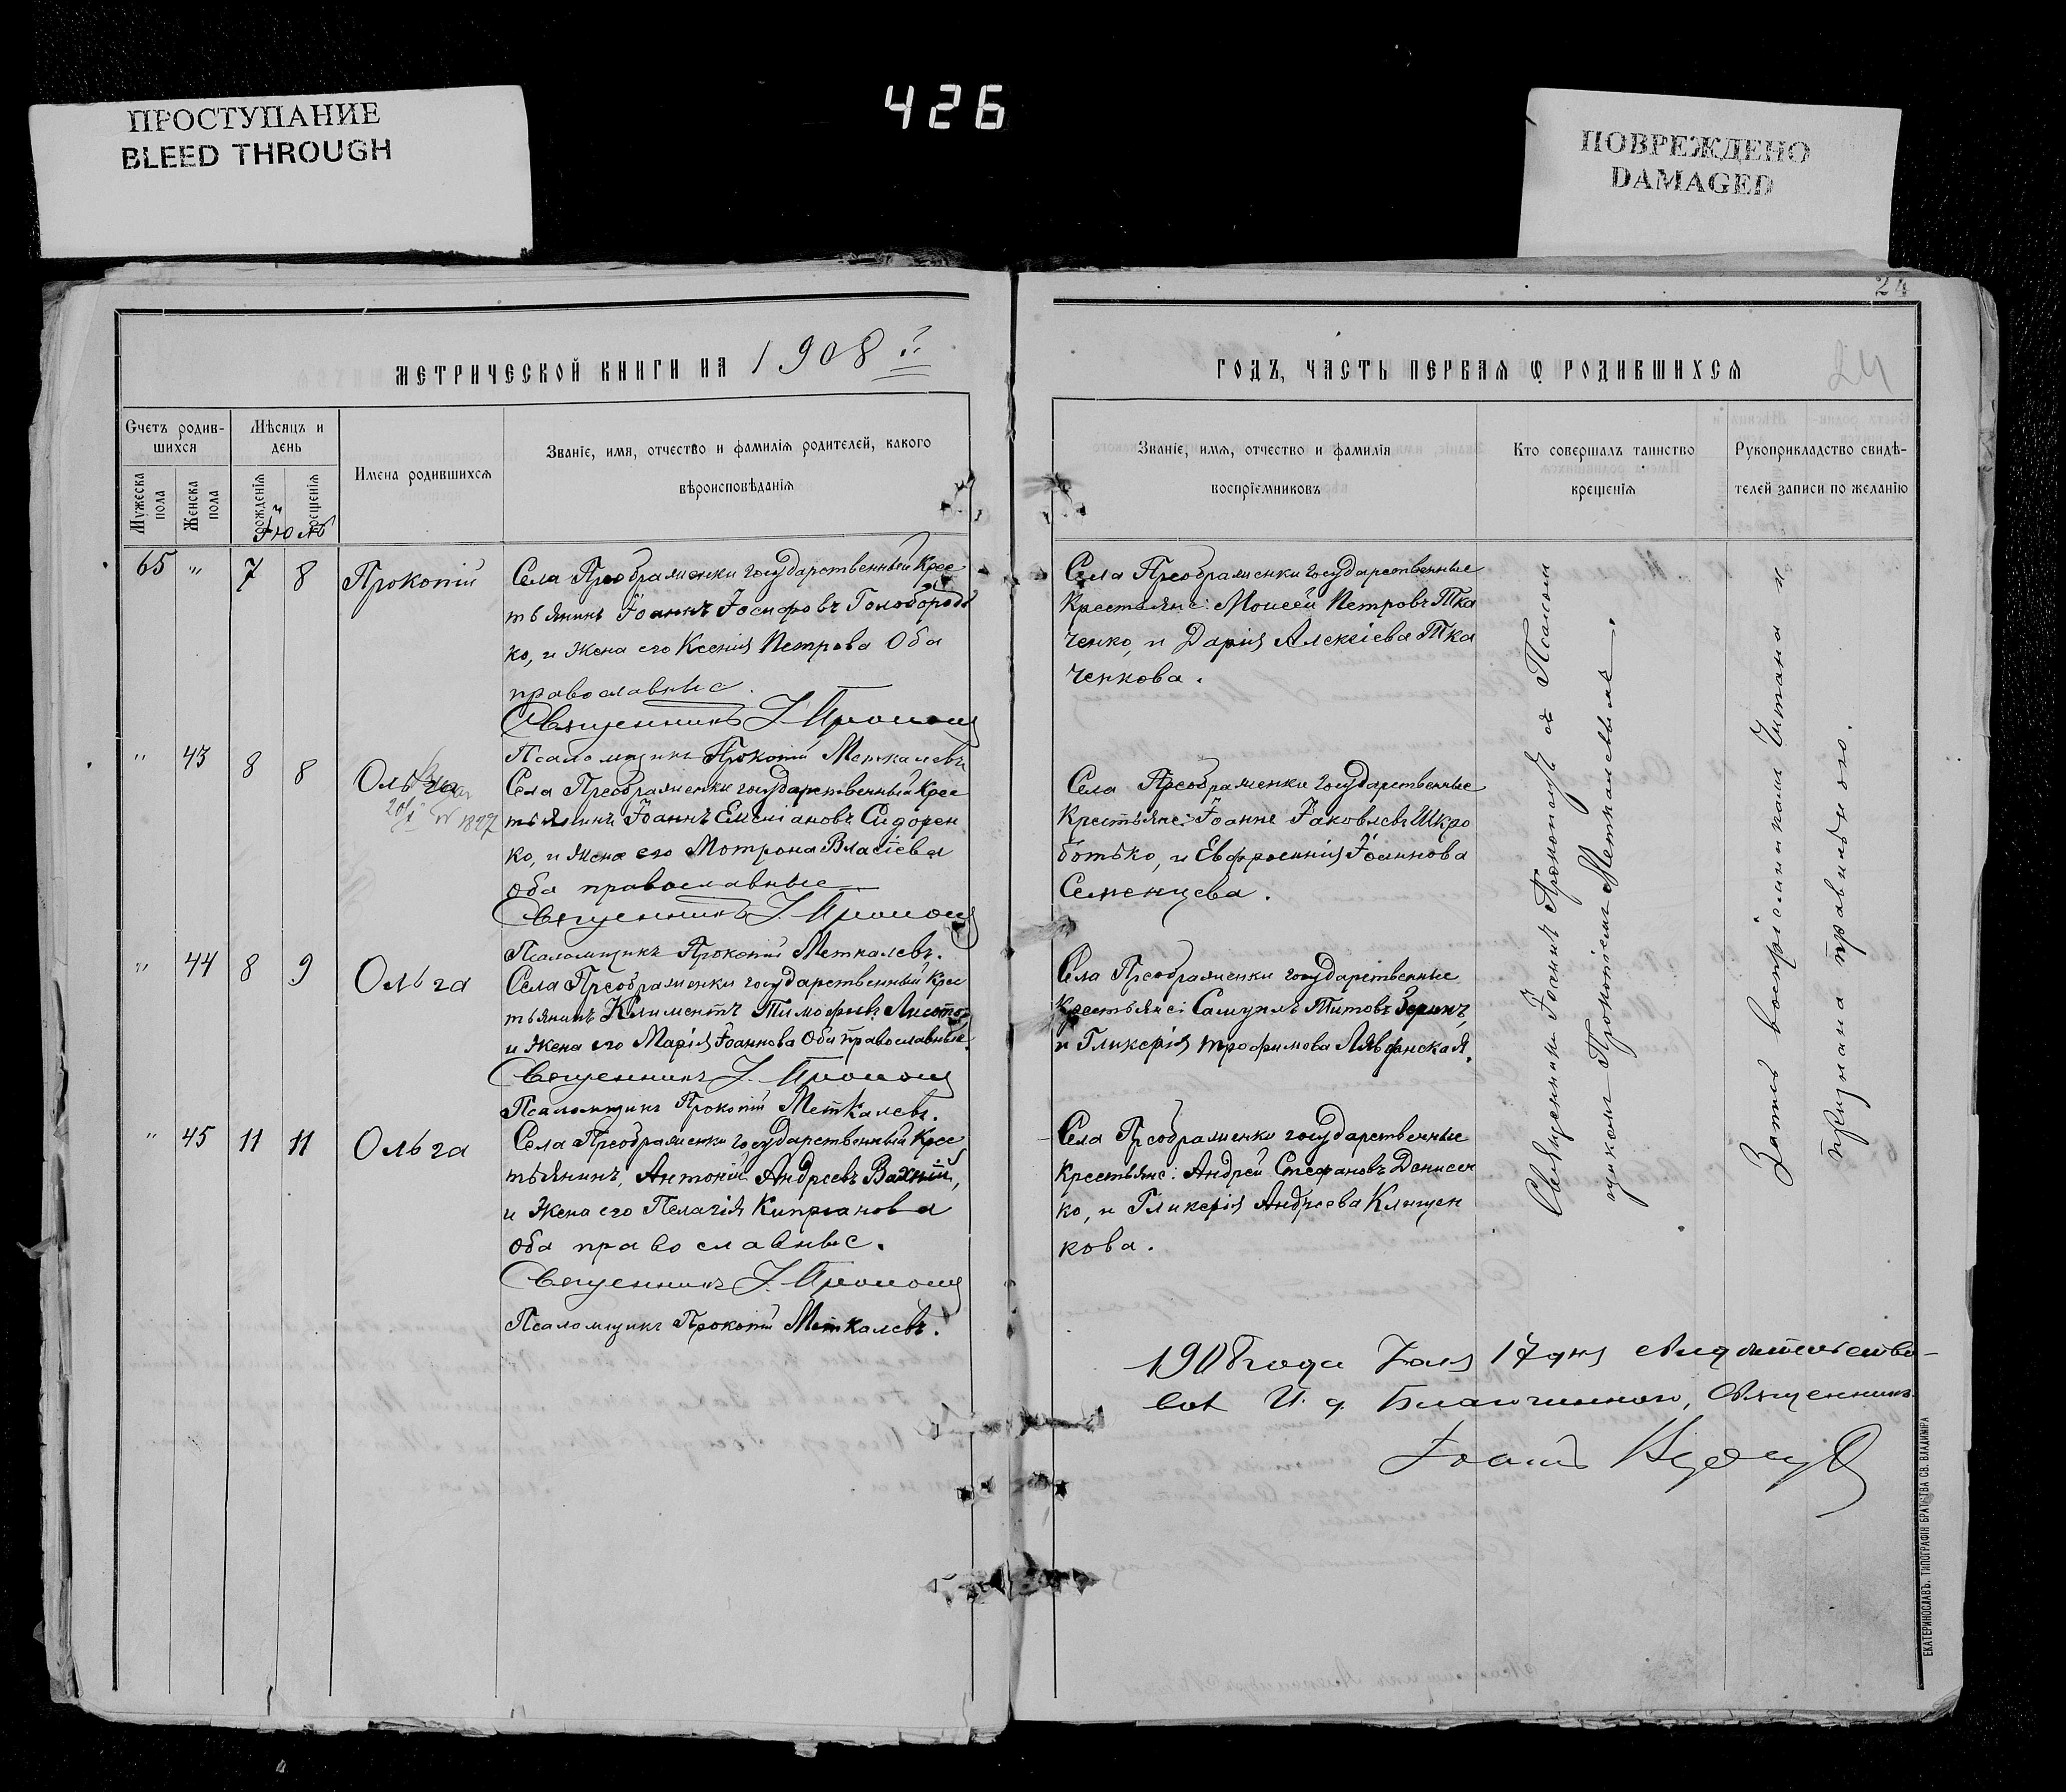 ПРОСТУПАНИЕ
BLEED THROUGH
426
ПОВРЕЖДЕНО
DAMAGED
24
МЕТРИЧЕСКОЙ КНИГИ НА 1908 й
Счетъ родившихся
Мѣсяцъ и день
Имена родившихся
Званіе, имя, отчество и фамилія родителей, какого
вѣроисповѣданія
Мужеска пола
Женска пола
рожденія
крещенія
Іюль
65 " 7 8 Прокопій
Села Преображенки государственный Крес
тьянинъ Іоаннъ Іосифовъ Голобородь
ко, и Жена его Ксенія Петрова Оба
православные.
Священникъ І.
Псаломщикъ Прокопій Меткалевъ
" 43 8 8 Ольга
1897
Села Преображенки государственный Крес
тьянинъ Іоаннъ Емельановъ Сидорен
ко, и Жена его Мотрона Власіева
Оба православные
Священникъ І.
Псаломщикъ Прокопій Меткалевъ.
" 44 8 9 Ольга
Села Преображенки государственный Крес
тьянинъ Климентъ Тимофеевъ
и Жена его Марія Іоаннова Оба православные.
Священникъ І.
Псаломщикъ Прокопій Меткалевъ.
" 45 11 11 Ольга
Села Преображенки государственный Крес
тьянинъ, Антоній Андреевъ Вахній,
и Жена его Пелагія Кипріанова
Оба православные.
Священникъ І.
Псаломщикъ Прокопій Меткалевъ.
ГОДЪ, ЧАСТЬ ПЕРВАЯ Ѿ РОДИВШИХСЯ
24
Званіе, имя, отчество и фамилія
воспріемниковъ
Кто совершалъ таинство
крещенія
Рукоприкладство свидѣ-
телей записи по желанію
Села Преображенки государственные
Крестьяне: Моисей Петровъ Тка
ченко, и Дарія Алексіева Тка
ченкова.
Села Преображенки государственные
Крестьяне: Іоанне Іаковлевъ Шкро
ботько, и Евфросинія Іоаннова
Семенцева.
Села Преображенки государственные
Крестьяне: Самуилъ Титовъ Зеринъ,
и Гликерія Трофимова
Села Преображенки государственные
Крестьяне: Андрей Стефановъ Денисен
ко, и Гликерія Андреева Клищен
кова.
Священникъ Іоаннъ съ Псалом
щикомъ Прокопіемъ Меткалевымъ.
Запись воспріемниками читана и
признана правильною.
1908 года Іюля 17 дня свидѣтельство-
валъ И. д. Благочиннаго, Священникъ
Іоаннъ
ЕКАТЕРИНОСЛАВЪ. ТИПОГРАФІЯ БРАТСТВА СВ. ВЛАДИМІРА